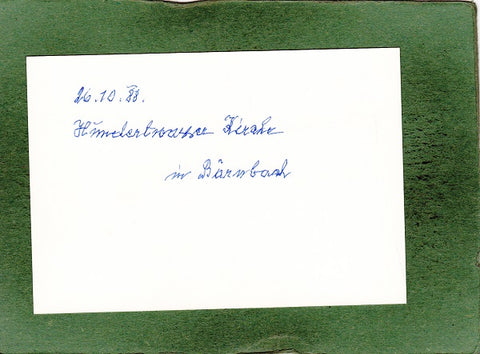 26.10.88.
Hundertwasser Kirche
in Bärnbach